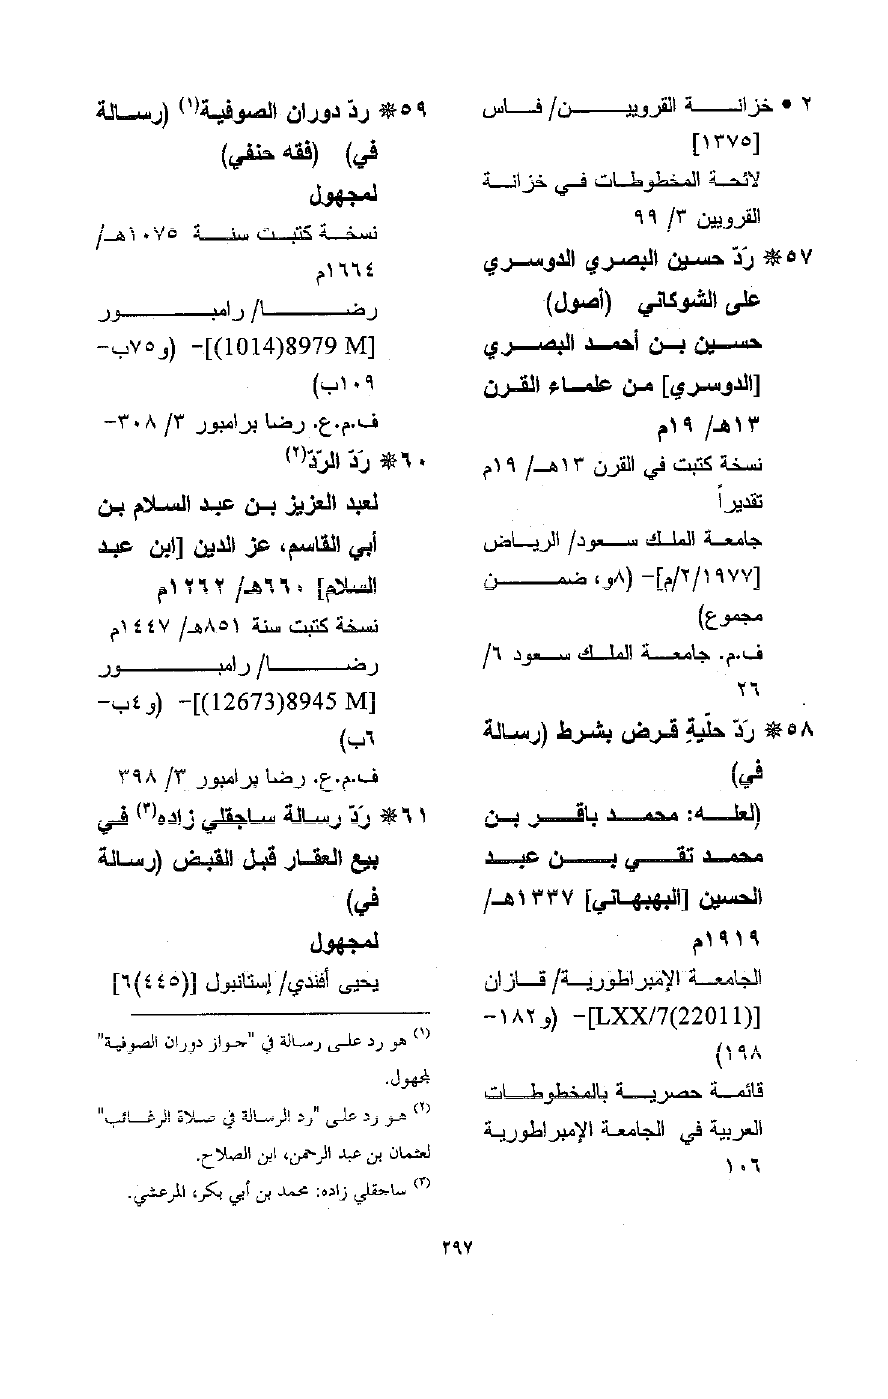 ٢ • خزانة القرويين/ فاس
[١٣٧٥]
لائحة المخطوطات في خزانة
القرويين ٣/ ٩٩
٥٧* رَدّ حسين البصري الدوسري
على الشوكاني (أصول)
حسين بن أحمد البصري
[الدوسري] من علماء القرن
١٣هـ/ ١٩م
نسخة كتبت في القرن ١٣هـ/ ١٩م
تقديراً
جامعة الملك سعود/ الرياض
[١٩٧٧/٢/م]- (٨و، ضمن
مجموع)
ف.م. جامعة الملك سعود ٦/
٢٦
٥٨* رَدّ حلّيةِ قرض بشرط (رسالة
في)
(لعله: محمد باقر بن
محمد تقي بن عبد
الحسين [البهبهاني] ١٣٣٧هـ/
١٩١٩م
الجامعة الإمبراطورية/ قازان
[LXX/7(22011)]- (و١٨٢-
١٩٨)
قائمة حصرية بالمخطوطات
العربية في الجامعة الإمبراطورية
١٠٦
٥٩* ردّ دوران الصوفية(١) (رسالة
في) (فقه حنفي)
لمجهول
نسخة كتبت سنة ١٠٧٥هـ/
١٦٦٤م
رضا/ رامبور
[8979 M(1014)]- (و٧٥ب-
١٠٩ب)
ف.م.ع. رضا برامبور ٣/ ٣٠٨-
٦٠* رَدّ الرّدّ(٢)
لعبد العزيز بن عبد السلام بن
أبي القاسم، عز الدين [ابن عبد
السلام] ٦٦٠هـ/ ١٢٦٢م
نسخة كتبت سنة ٨٥١هـ/ ١٤٤٧م
رضا/ رامبور
[8945 M(12673)]- (و٤ب-
٦ب)
ف.م.ع. رضا برامبور ٣/ ٣٩٨
٦١* رَدّ رسالة ساجقلي زاده(٣) في
بيع العقار قبل القبض (رسالة
في)
لمجهول
يحيى أفندي/ إستانبول [(٤٤٥)٦]
(١) هو رد على رسالة في "جواز دوران الصوفية"
لمجهول.
(٢) هو رد على "رد الرسالة في صلاة الرغائب"
لعثمان بن عبد الرحمن، ابن الصلاح.
(٣) ساجقلي زاده: محمد بن أبي بكر، المرعشي.
٢٩٧